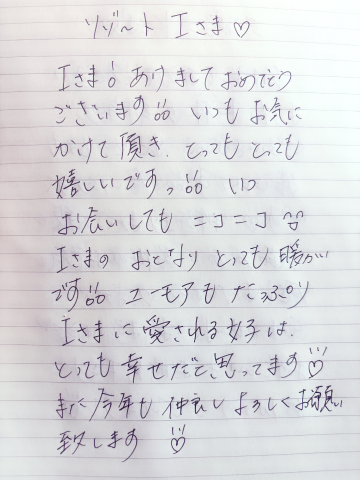 リゾート Iさま♡
Iさま! あけましておめでとう
ございます!! いつもお気に
かけて頂き、とってもとっても
嬉しいですっ!! いつ
お会いしてもニコニコ
Iさまの おとなり とっても暖かい
です!! ユーモアもたっぷり
Iさまに愛される女子は、
とっても幸せだと思ってます♡
また今年も仲良しよろしくお願い
致します ♡